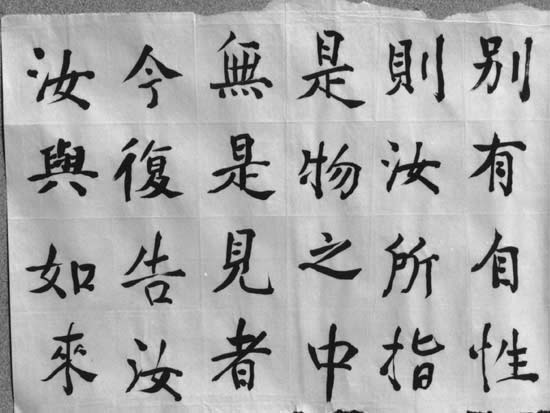 別有自性
則汝所指
是物之中
無是見者
今復告汝
汝與如來